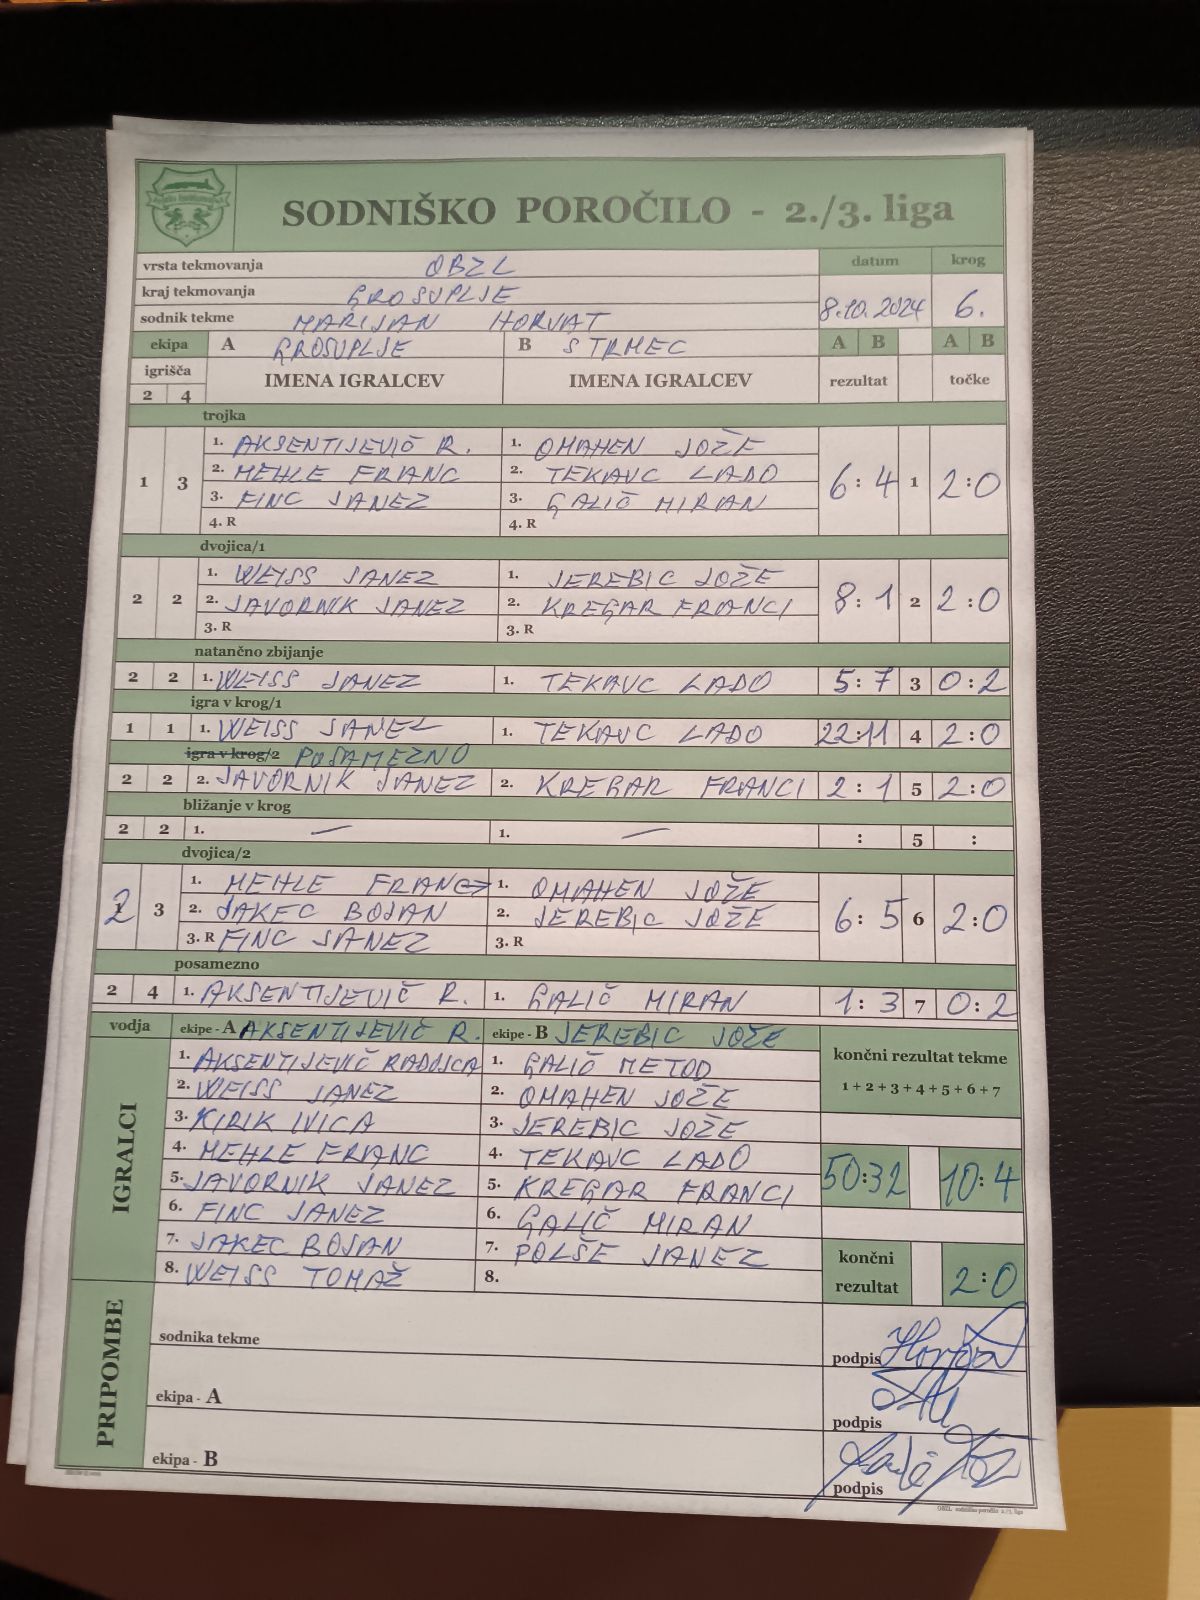 SODNIŠKO POROČILO - 2./3. liga
vrsta tekmovanja OBZL datum krog
kraj tekmovanja GROSUPLJE 8.10.2024 6.
sodnik tekme MARIJAN HORVAT
ekipa A GROSUPLJE B STRMEC A B A B
igrišča IMENA IGRALCEV IMENA IGRALCEV rezultat točke
2 4
trojka
1. AKSENTIJEVIČ R. 1. OMAHEN JOŽE
1 3 2. MEHLE FRANC 2. TEKAVC LADO 6:4 1 2:0
3. FINC JANEZ 3. GALIČ MIRAN
4. R 4. R
dvojica/1
1. WEISS JANEZ 1. JEREBIC JOŽE
2 2 2. JAVORNIK JANEZ 2. KREGAR FRANCI 8:1 2 2:0
3. R 3. R
natančno zbijanje
2 2 1. WEISS JANEZ 1. TEKAVC LADO 5:7 3 0:2
igra v krog/1
1 1 1. WEISS JANEZ 1. TEKAVC LADO 22:11 4 2:0
igra v krog/2 POSAMEZNO
2 2 2. JAVORNIK JANEZ 2. KREGAR FRANCI 2:1 5 2:0
bližanje v krog
2 2 1. — 1. — : 5 :
dvojica/2
1. MEHLE FRANC 1. OMAHEN JOŽE
2 3 2. JAKEC BOJAN 2. JEREBIC JOŽE 6:5 6 2:0
3. R FINC JANEZ 3. R
posamezno
2 4 1. AKSENTIJEVIČ R. 1. GALIČ MIRAN 1:3 7 0:2
vodja ekipe - A AKSENTIJEVIČ R. ekipe - B JEREBIC JOŽE
IGRALCI
1. AKSENTIJEVIČ RADOJCA 1. GALIČ METOD končni rezultat tekme
2. WEISS JANEZ 2. OMAHEN JOŽE 1 + 2 + 3 + 4 + 5 + 6 + 7
3. KIRIK IVICA 3. JEREBIC JOŽE
4. MEHLE FRANC 4. TEKAVC LADO
5. JAVORNIK JANEZ 5. KREGAR FRANCI 50:32 10:4
6. FINC JANEZ 6. GALIČ MIRAN
7. JAKEC BOJAN 7. POLŠE JANEZ
8. WEISS TOMAŽ 8. končni rezultat 2:0
PRIPOMBE
sodnika tekme podpis
ekipa - A podpis
ekipa - B podpis
OBZL sodniško poročilo 2./3. liga